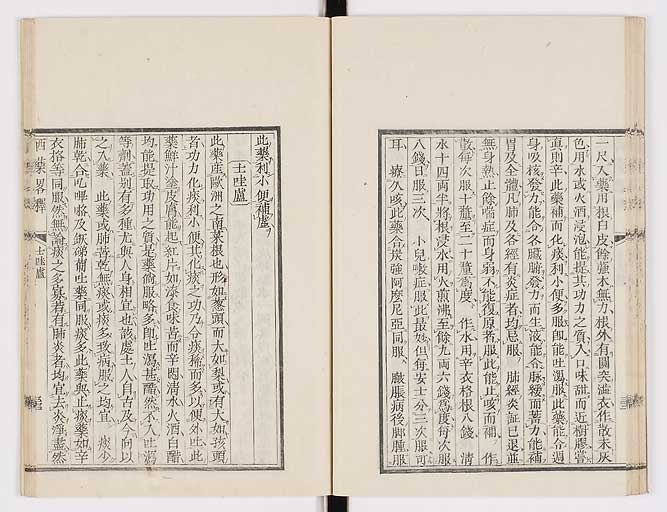 一尺、入藥用根白皮、餘雖木無力、根外有圓突溢、衣作散末、灰
色、用水或火酒浸泡、能提其功力之質、入口味甜而近樹膠、嘗
眞則辛、此藥補而化痰利小便、多服卽能吐瀉、服此藥能令週
身吸核發力、能令各臟腑發力而生液、能令脉緩而蓄力、能補
胃及全體、凡肺及各經有炎症者、均忌服、肺經炎証已退、並
無身熱、止餘喘症而身弱、不能復原者、服此能止咳而補、作
散每次服十釐至二十釐爲度、作水用辛衣格根八錢、清
水十四兩半、將根浸水、用火煎沸、至餘九兩六錢爲度、每次服
八錢、日服三次、小兒嗽症服此最妙、但每安士分三次服可
耳、療久咳、此藥合炭強阿摩尼亞同服、臌脹病後脚腫、服
此藥利小便補虛、
士哇盧
此藥產歐洲之南、菜根也、形如葱頭而大如梨、或有大如孩頭
者、功力化痰利小便、其化痰之功、乃令痰稀而多、以便外吐、此
藥鮮汁塗皮膚、能起紅片如漆、食味苦而辛悶、清水火酒白醋、
均能提取功用之質、是藥倘服略多、卽吐瀉甚、醋然不入吐瀉
等劑、蓋別有多種尤與人身相宜也、該處土人自古及今、向以
之入藥、此藥或肺苦乾無痰、或痰多致病、服之均宜、痰少
肺乾、合
吐藥同服、痰多、此藥與止痰藥如辛
衣格等同服、然無論痰之多寡、若有肺炎者、均宜去炎淨盡、然
西藥畧釋
士哇盧